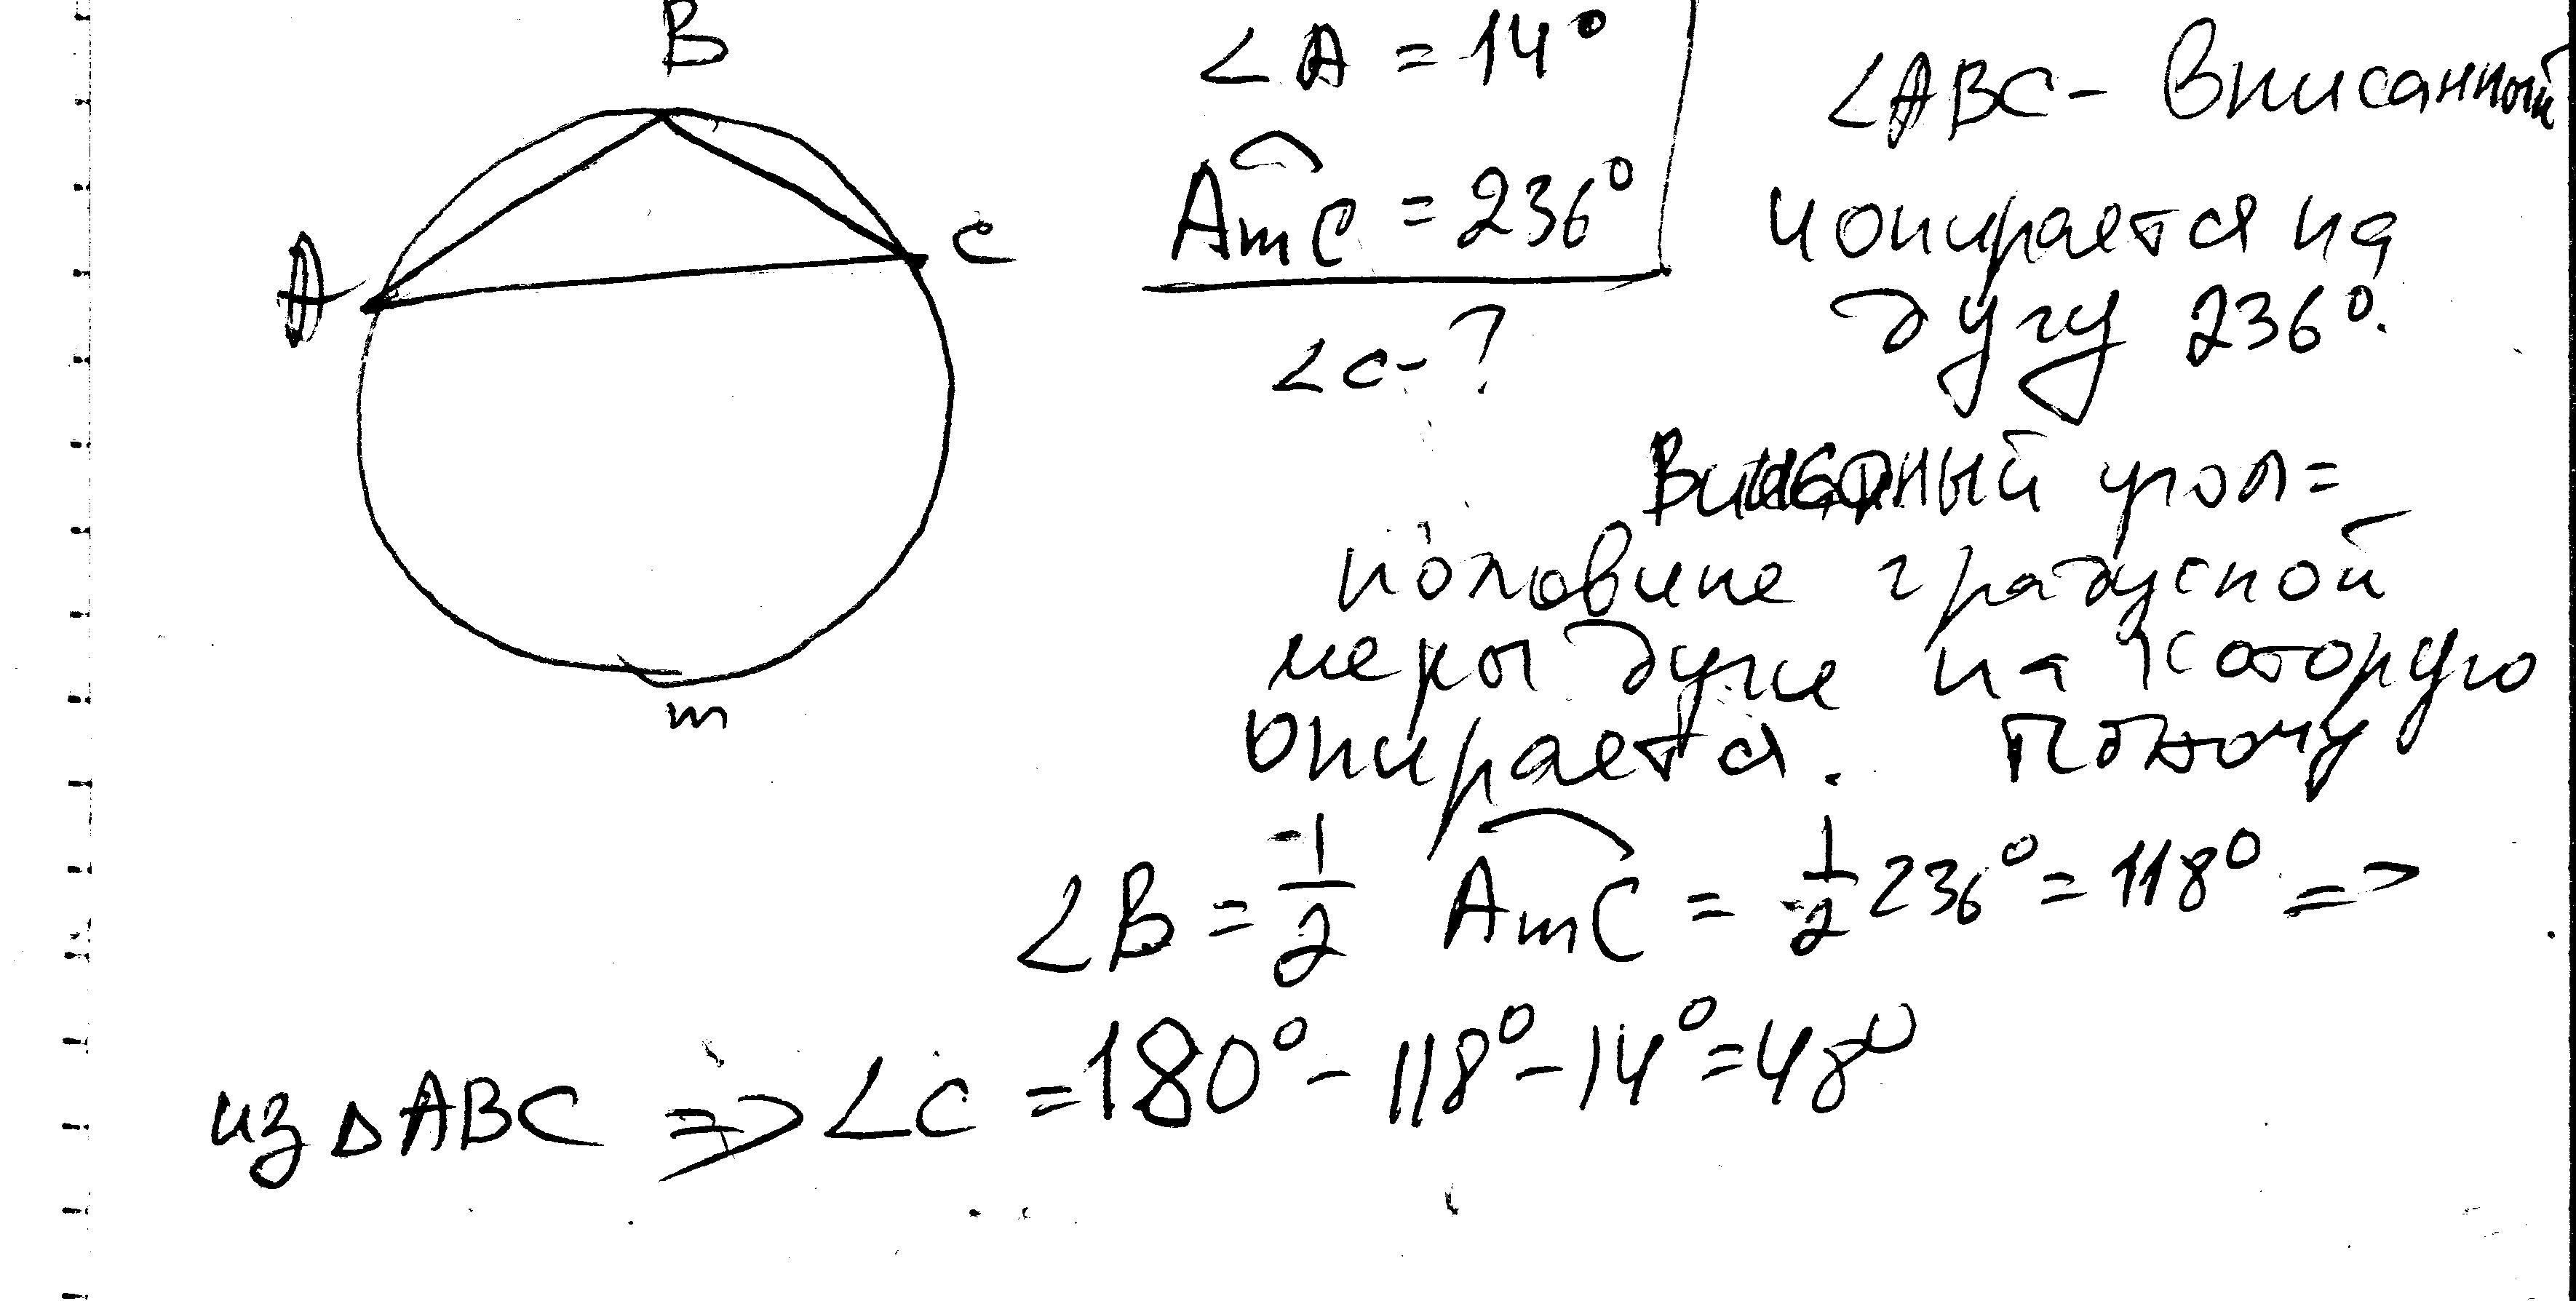 B
A
C
m
∠A = 14°
AmC = 236°
∠C - ?
∠ABC - Вписанный
и опирается на
дугу 236°.
Вписанный угол =
половине градусной
меры дуги на которую
опирается. Потому
∠B = 1/2 AmC = 1/2 236° = 118° =>
из △ABC => ∠C = 180° - 118° - 14° = 48°